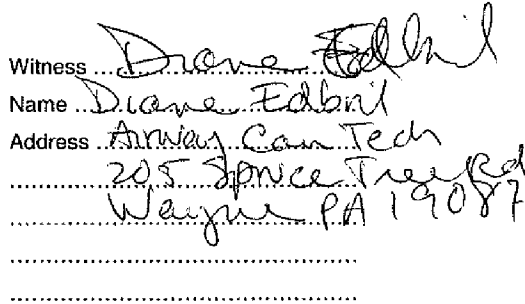 Witness Diane Edbril
Name Diane Edbril
Address Airway Cam Tech
205 Spruce Tree Rd
Wayne PA 19087